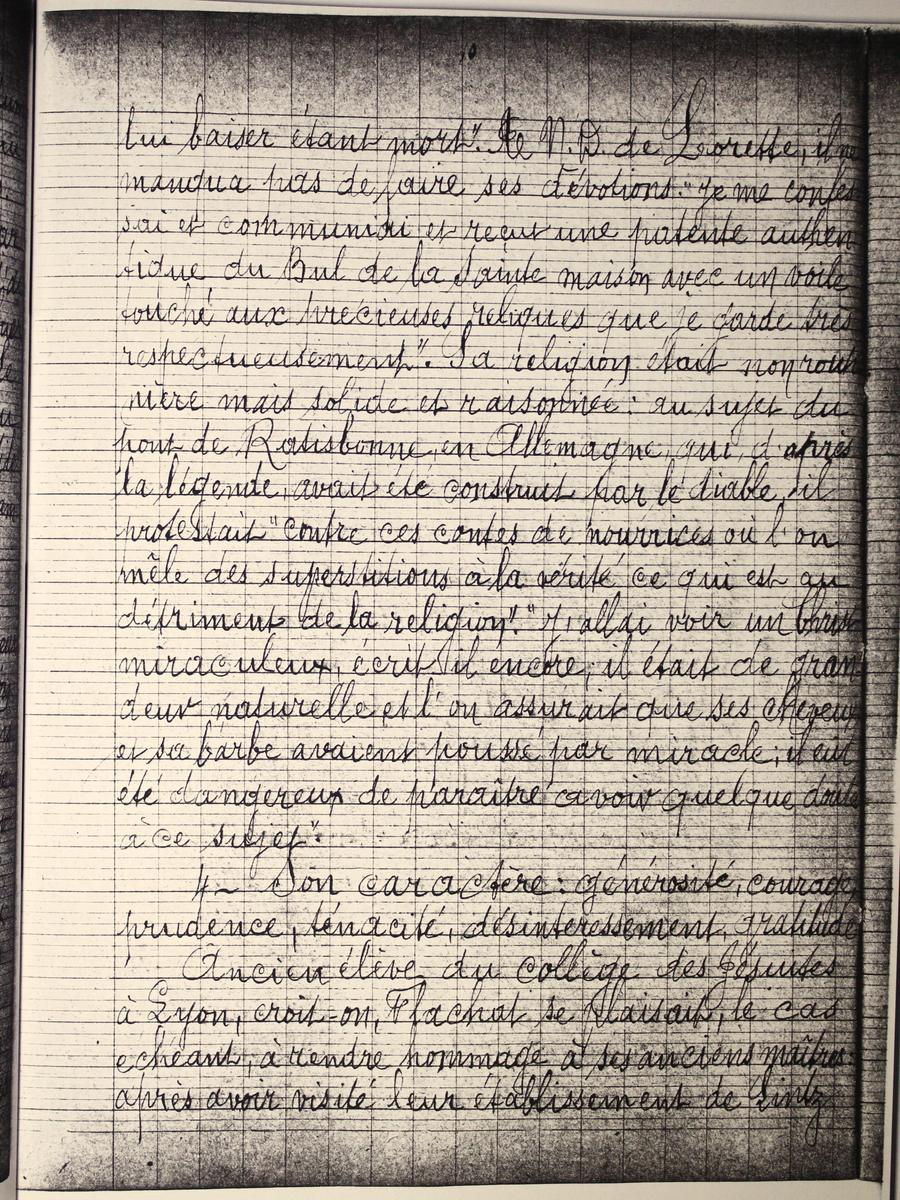 10
lui baiser étant mort". De N.D. de Lorette, il ne
manqua pas de faire ses dévotions: "Je me confes
sai et communiai et reçut une patente authen
tique du Bul de la Sainte maison avec un voile
touché aux précieuses reliques que je garde très
respectueusement". Sa religion était non routi
nière mais solide et raisonnée: au sujet du
pont de Ratisbonne, en Allemagne, qui, d'après
la légende, avait été construit par le diable, il
protestait "contre ces contes de nourrices où l'on
mêle des superstitions à la vérité, ce qui est au
détriment de la religion". "J'allai voir un Christ
miraculeux, écrit-il encore; il était de gran
deur naturelle et l'on assurait que ses cheveux
et sa barbe avaient poussé par miracle; il eut
été dangereux de paraître avoir quelque doute
à ce sujet".
4- Son caractère: générosité, courage,
prudence, ténacité, désintéressement, gratitude
Ancien élève du collège des Jésuites
à Lyon, croit-on, Flachat se plaisait, le cas
echéant, à rendre hommage à ses anciens maîtres
après avoir visité leur établissement de Lintz